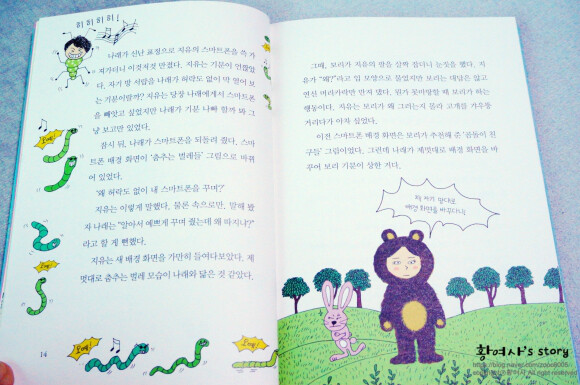 히히히히!
나래가 신난 표정으로 지유의 스마트폰을 쓱 가
져가더니 이것저것 만졌다. 지유는 기분이 언짢았
다. 자기 방 서랍을 나래가 허락도 없이 막 열어 보
는 기분이랄까? 지유는 당장 나래에게서 스마트폰
을 빼앗고 싶었지만 나래가 기분 나빠 할까 봐 그
냥 보고만 있었다.
잠시 뒤, 나래가 스마트폰을 되돌려 줬다. 스마
트폰 배경 화면이 '춤추는 벌레들' 그림으로 바뀌
어 있었다.
'왜 허락도 없이 내 스마트폰을 꾸며?'
지유는 이렇게 말했다. 물론 속으로만. 말해 봤
자 나래는 "알아서 예쁘게 꾸며 줬는데 왜 따지냐?"
라고 할 게 뻔했다.
지유는 새 배경 화면을 가만히 들여다보았다. 제
멋대로 춤추는 벌레 모습이 나래와 닮은 것 같았다.
14
그때, 보리가 지유의 팔을 살짝 잡더니 눈짓을 했다. 지
유가 "왜?"라고 입 모양으로 물었지만 보리는 대답은 않고
연신 머리카락만 만져 댔다. 뭔가 못마땅할 때 보리가 하는
행동이다. 지유는 보리가 왜 그러는지 몰라 고개를 갸우뚱
거리다가 아차 싶었다.
이전 스마트폰 배경 화면은 보리가 추천해 준 '곰돌이 친
구들' 그림이었다. 그런데 나래가 제멋대로 배경 화면을 바
꾸어 보리 기분이 상한 거다.
제 멋대로
배경 화면을 바꾸다니!
황여사's story